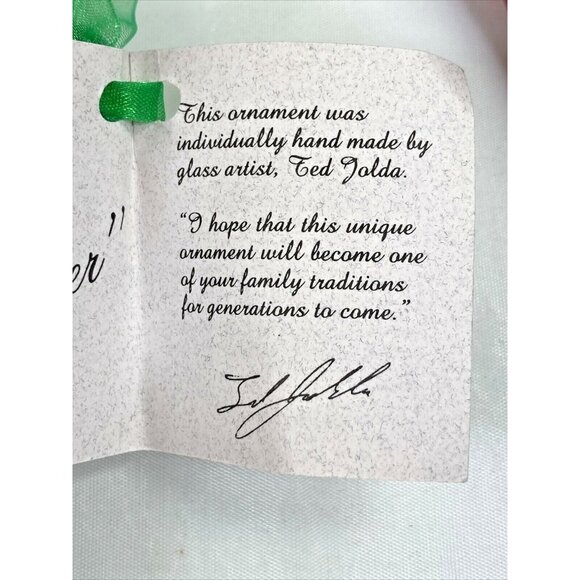 This ornament was
individually hand made by
glass artist, Ted Jolda.
"I hope that this unique
ornament will become one
of your family traditions
for generations to come."
er"
Ted Jolda